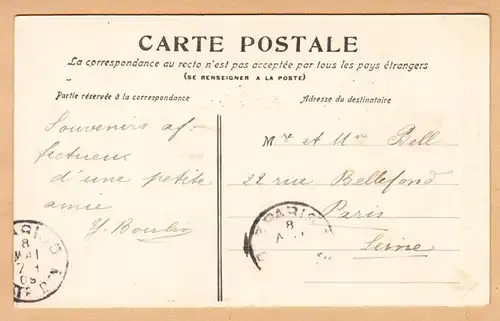 CARTE POSTALE
La correspondance au recto n'est pas acceptée par tous les pays étrangers
(SE RENSEIGNER A LA POSTE)
Partie réservée à la correspondance
Adresse du destinataire
Souvenirs af-
fectueux
d'une petite
amie
Y. Boulin
Mr et Mme Bell
22 rue Bellefond
Paris
Seine
PARIS
8
8
MAI
09